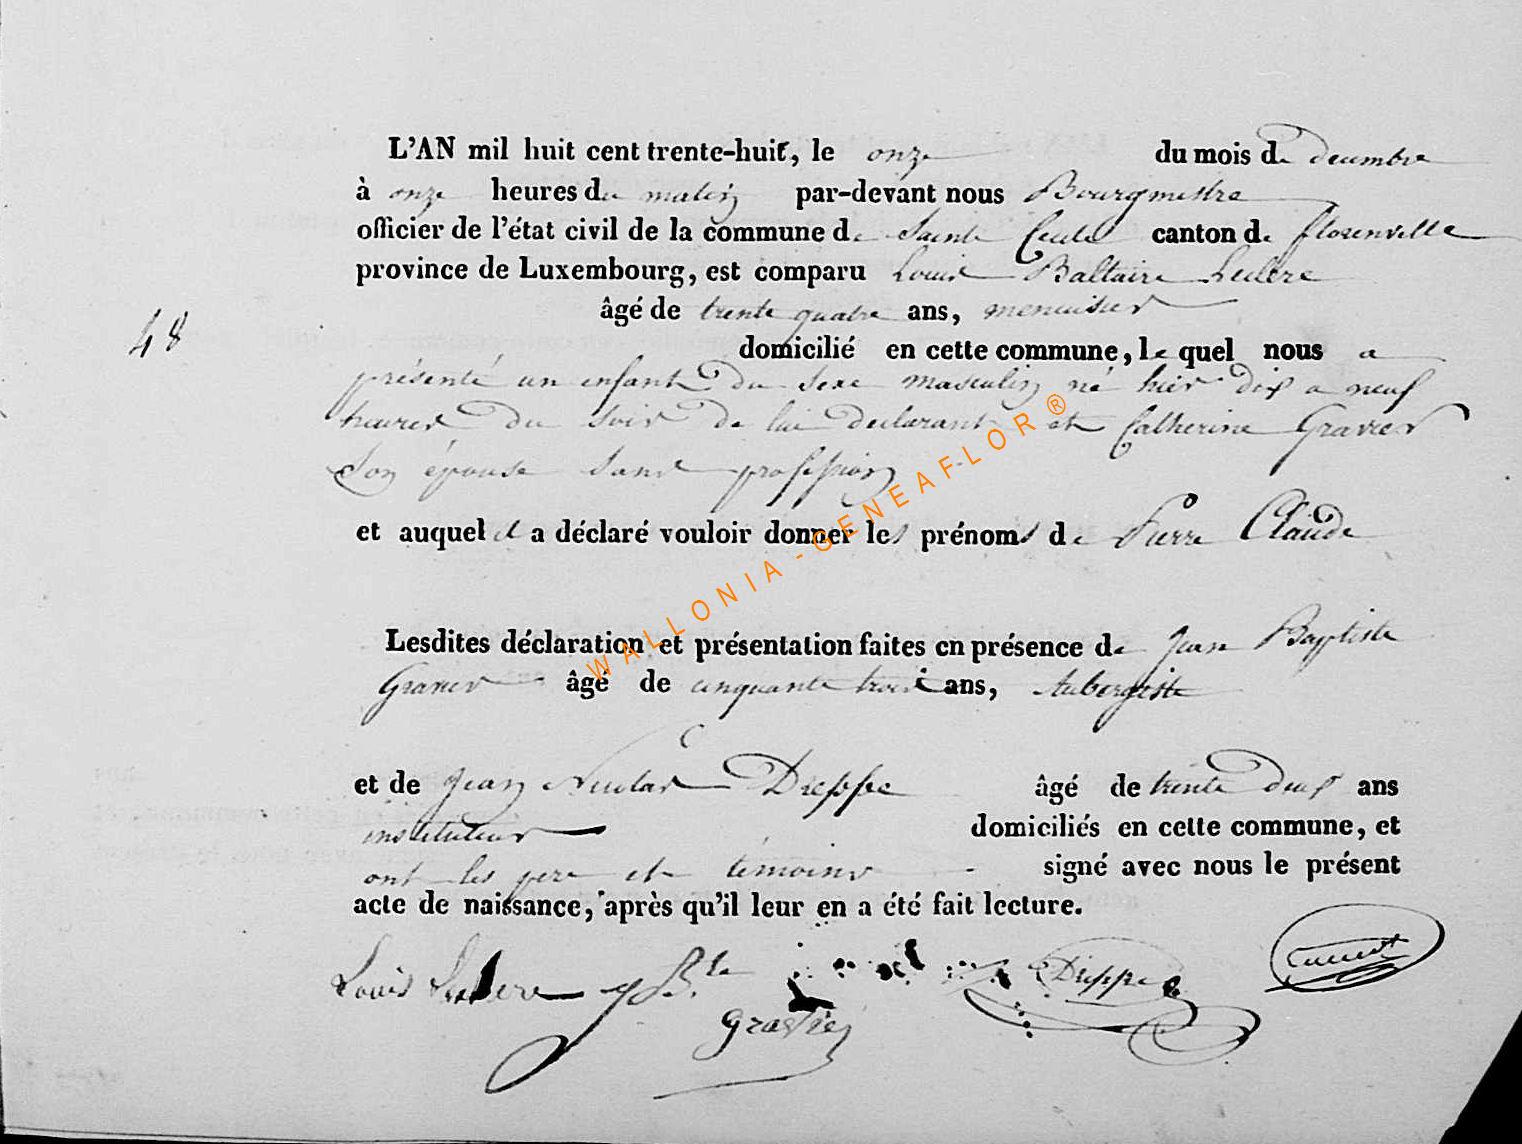 L'AN mil huit cent trente-huit, le onze du mois de decembre
à onze heures du matin par-devant nous Bourgmestre
officier de l'état civil de la commune de Sainte Cecile canton de florenville
province de Luxembourg, est comparu Louis Baltaire Leclere
âgé de trente quatre ans, menuisier
domicilié en cette commune, le quel nous a
48
présenté un enfant du sexe masculin né hier dix a neuf
heures du soir de lui declarant et Catherine Gravier
Son épouse sans profession
et auquel il a déclaré vouloir donner les prénoms de Pierre Claude
WALLONIA - GENEAFLOR ®
Lesdites déclaration et présentation faites en présence de Jean Baptiste
Gravier âgé de cinquante trois ans, Aubergiste
et de Jean Nicolas Dreppe âgé de trente deux ans
instituteur domiciliés en cette commune, et
ont les pere et témoins signé avec nous le présent
acte de naissance, après qu'il leur en a été fait lecture.
Louis Leclere J Bte Dreppe
Gravier